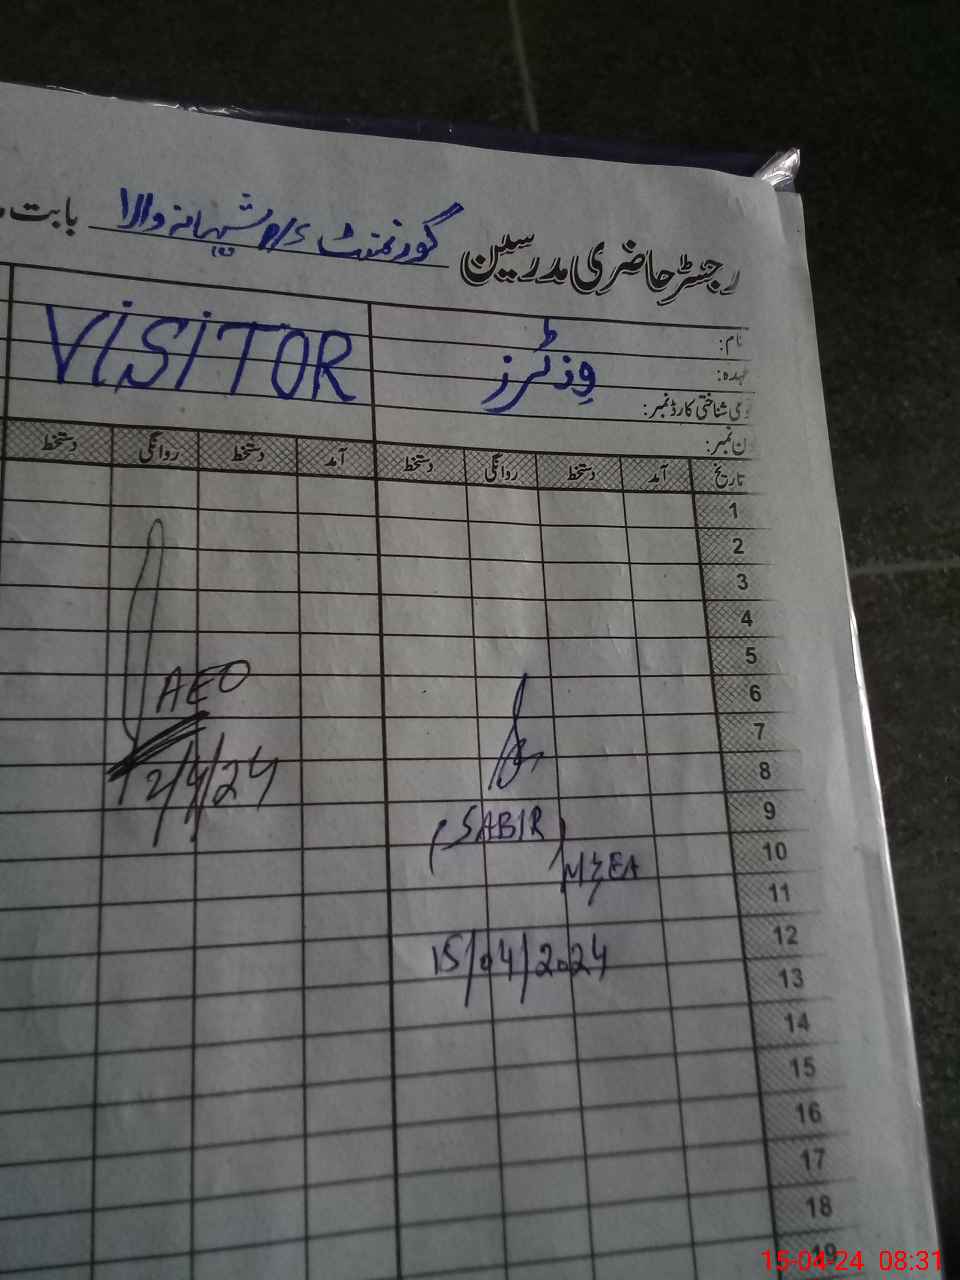 رجسٹر حاضری مدرسین گورنمنٹ p/s شیہانہ والا بابت
نام:
عہدہ:
قومی شناختی کارڈ نمبر:
فون نمبر:
وزٹرز
VISITOR
تاریخ آمد دستخط روانگی دستخط آمد دستخط روانگی دستخط
1
2
3
4
5
6
7
8
9
10
11
12
13
14
15
16
17
18
19
(SABIR)
MEA
15/04/2024
AEO
12/4/24
15-04-24 08:31